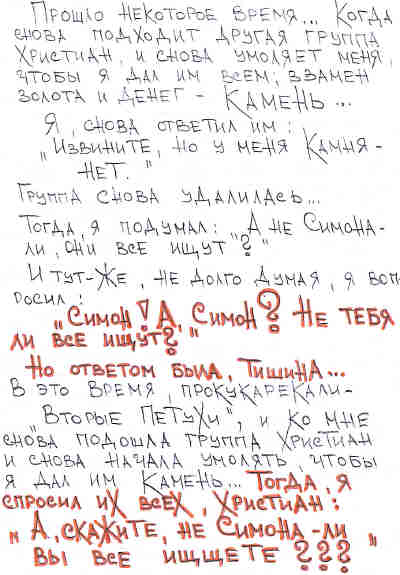 Прошло некоторое время... Когда
снова подходит другая группа
Христиан, и снова умоляет меня,
чтобы я дал им всем; взамен
золота и денег – Камень...
Я, снова ответил им:
„Извините, но у меня Камня –
нет."
Группа снова удалилась...
Тогда, я подумал: „А не Симона-
ли, они все ищут"?"
И тут-же, не долго думая, я воп
росил:
„Симон! А, Симон? Не тебя
ли все ищут?"
Но ответом была, Тишина...
В это время, прокукарекали –
„Вторые Петухи", и ко мне
снова подошла группа Христиан
и снова начала умолять, чтобы
я дал им Камень... Тогда, я
спросил их всех, Христиан:
„А, скажите, не Симона-ли
вы все ищщете ???"